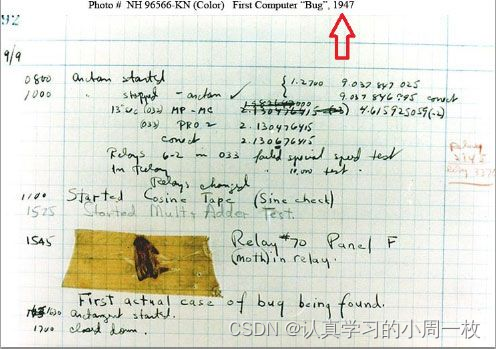 Photo # NH 96566-KN (Color) First Computer "Bug", 1947
92
9/9
0800 antan started
1000 " stopped - antan ✓ { 1.2700 9.037 847 025
9.037 846 995 correct
13"uc (032) MP - MC 2.130476415 4.615925059(-2)
(033) PRO 2 2.130476415
correct 2.130676415
Relays 6-2 in 033 failed special speed test
In Relay " 10,000 test.
Relays changed
Relay
2145
Relay 3370
1100 Started Cosine Tape (Sine check)
1525 Started Mult + Adder Test.
1545 Relay #70 Panel F
(Moth) in relay.
First actual case of bug being found.
1630 antangent started.
1700 closed down.
CSDN @认真学习的小周一枚